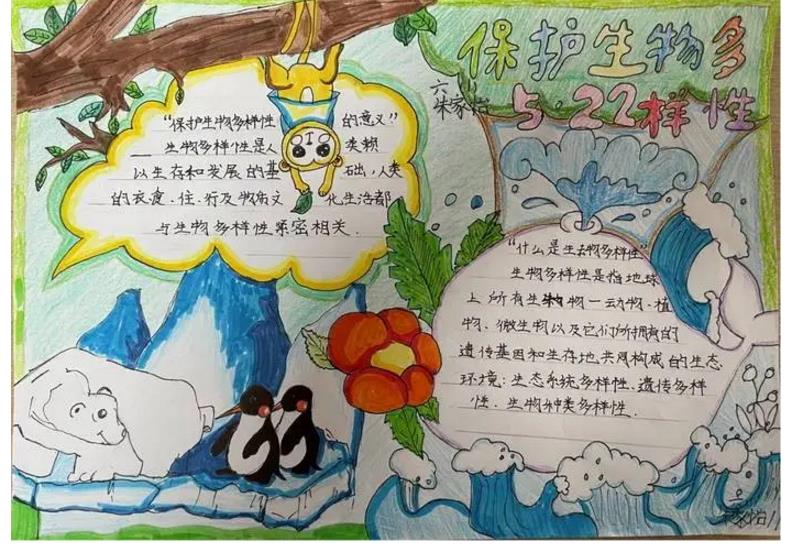 保护生物多
5·22样性
六
朱家怡
"保护生物多样性的意义"
生物多样性是人类赖
以生存和发展的基础,人类
的衣食、住、行及物质文化生活都
与生物多样性紧密相关.
"什么是生物多样性"
生物多样性是指地球
上所有生物—动物、植
物、微生物以及它们所拥有的
遗传基因和生存地共同构成的生态
环境:生态系统多样性、遗传多样
性、生物种类多样性.